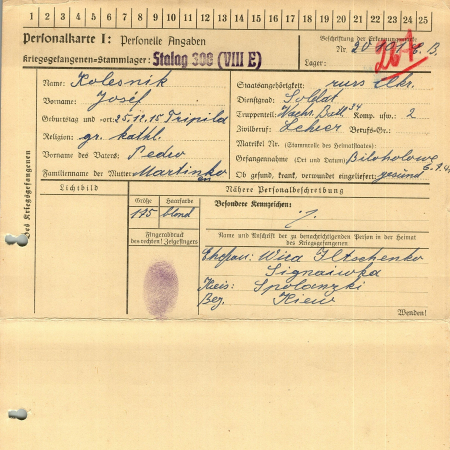 1 2 3 4 5 6 7 8 9 10 11 12 13 14 15 16 17 18 19 20 21 22 23 24 25
Personalkarte I: Personelle Angaben
Kriegsgefangenen-Stammlager: Stalag 308 (VIII E)
Beschriftung der Erkennungsmarke
Nr. 20101 B.
Lager:
Des Kriegsgefangenen
Name: Kolesnik
Vorname: Josef
Geburtstag und -ort: 25.12.15 Tripila
Religion: gr. kathl.
Vorname des Vaters: Pedro
Familienname der Mutter: Martinko
Staatsangehörigkeit: russ Ukr.
Dienstgrad: Soldat
Truppenteil: Wach Batl 34 Komp. usw.: 2
Zivilberuf: Lehrer Berufs-Gr.:
Matrikel Nr. (Stammrolle des Heimatstaates):
Gefangennahme (Ort und Datum): Biloholowe
Ob gesund, krank, verwundet eingeliefert: gesund
Lichtbild
Nähere Personalbeschreibung
Größe
Haarfarbe
Besondere Kennzeichen:
175 blond
Fingerabdruck
des rechten! Zeigefingers
Name und Anschrift der zu benachrichtigenden Person in der Heimat
des Kriegsgefangenen
Ehefrau: Wira Iltschenko
Signaiwka
Kreis: Spolanzki
Bez. Kiew
Wenden!